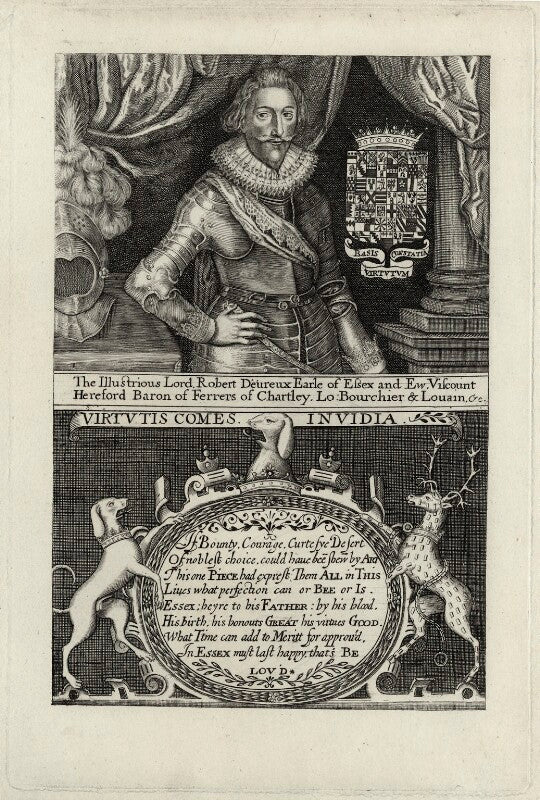 BASIS CONSTATIA
VIRTVTVM
The Illustrious Lord, Robert Deüreux Earle of Essex and Ew: Viscount
Hereford Baron of Ferrers of Chartley. Lo: Bourchier & Louain, &c.
VIRTVTIS COMES. INVIDIA.
If Bounty, Courage, Curtesye Desert
Of noblest choice, could haue beē shew by ART
This one PIECE had exprest Them ALL in THIS
Liues what perfection can or BEE or Is.
ESSEX; heyre to his FATHER: by his blood.
His birth, his honours GREAT his vatues GOOD.
What Time can add to Meritt for approu'd,
In ESSEX must last happy, that's BE
LOV'D.